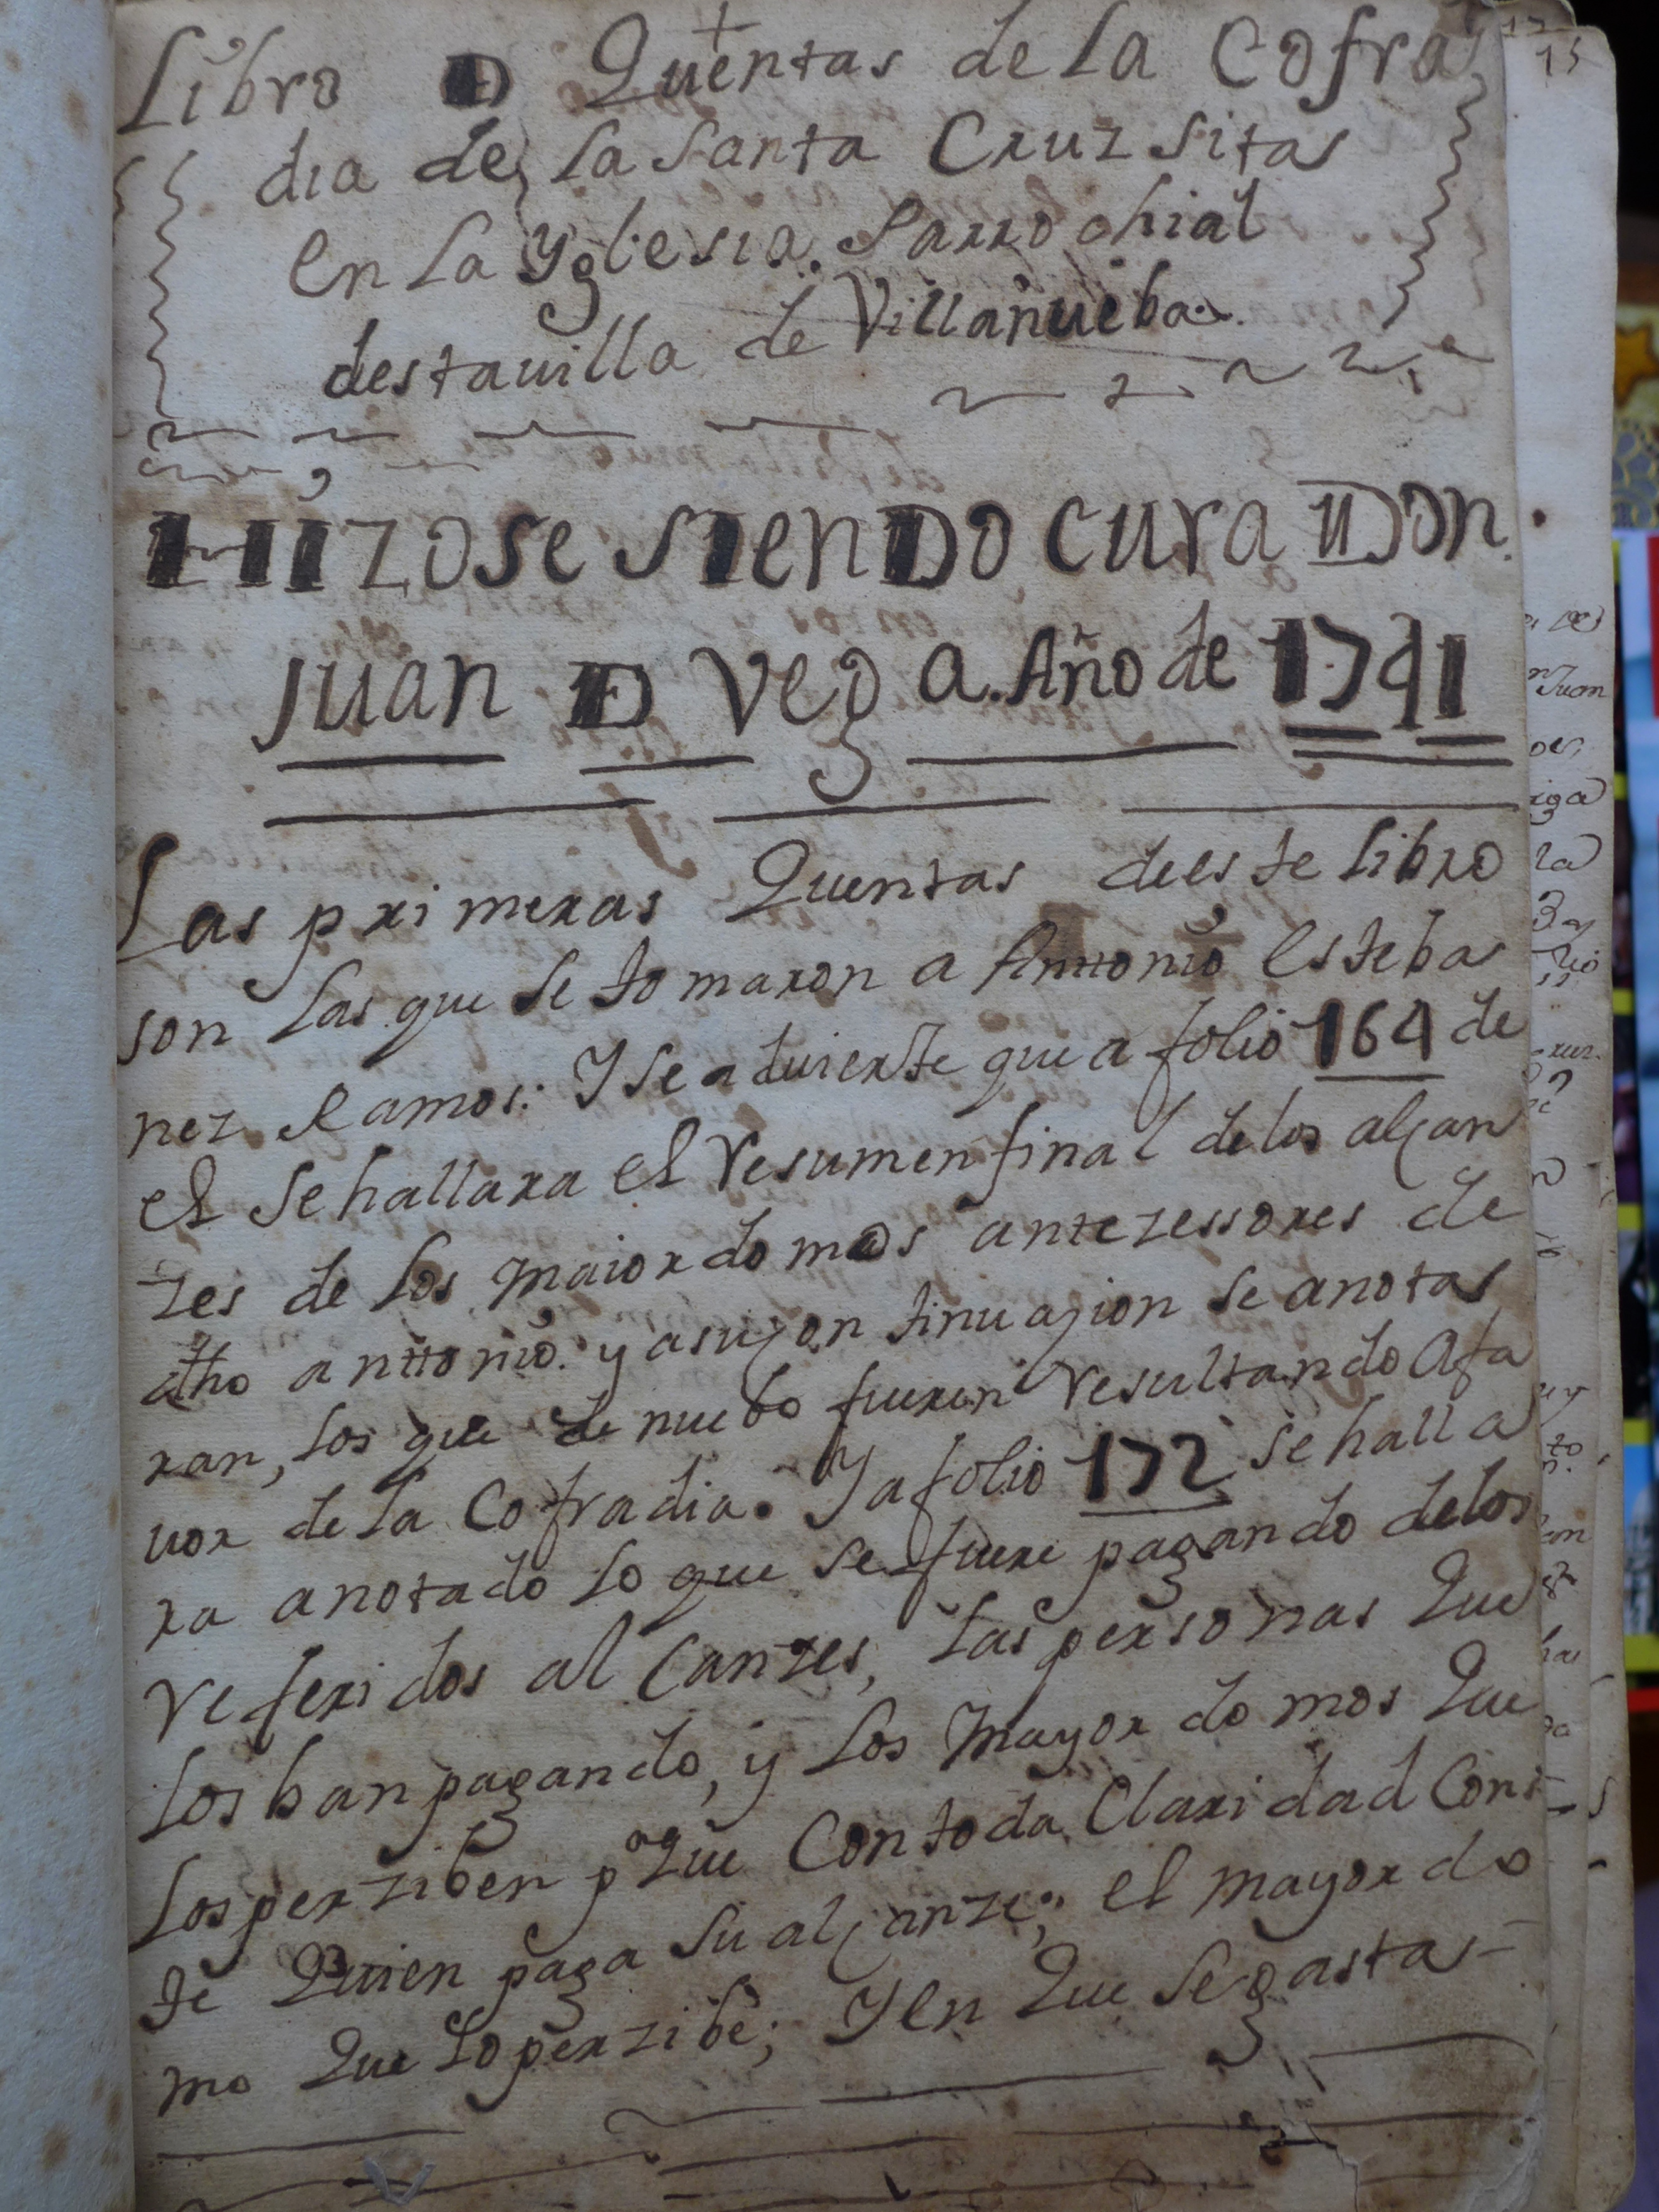 Libro DE Quentas de la Cofra
dia de la Santa Cruz sitas
en la Yglesia Parrochial
destauilla de Villanueba.
HIZOSE SIENDO CURA DON
Juan DE Vega. Año de 1741
Las primeras Quentas deeste libro
son las que se tomaron a Anttonio Esteba
nez Ramos: Y se aduierte que a folio 164 de
el se hallara el resumen final de los alcan
zes de los maiordomos antezessores de
dho anttonio. y a su continuazion se anota
ran, los que de nuebo fueren resultando a fa
uor de la Cofradia. Y a folio 172 se halla
ra anotado lo que se fuere pagando de los
referidos alcanzes, las personas que
los ban pagando, y los mayordomos que
los perziben pa que con toda claridad Cons
te quien paga su alcanze; el mayordo
mo que lo perzibe; Y en que se gasta-
15
Juan